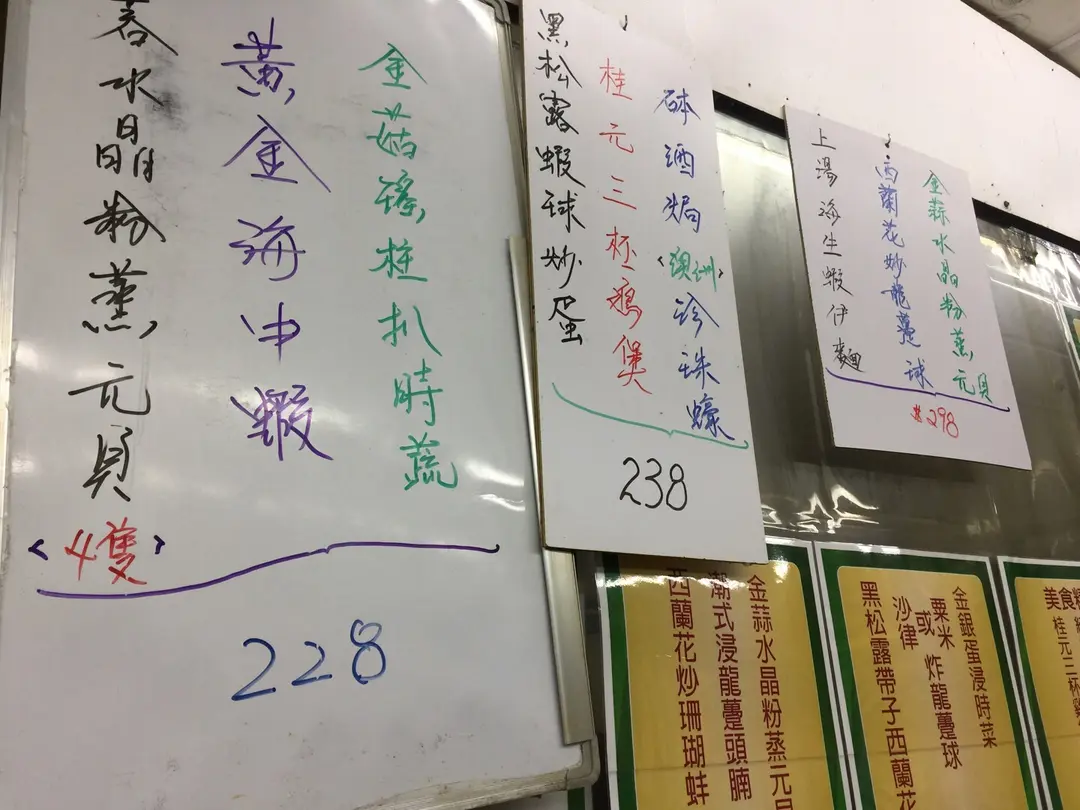 金菇瑤柱扒時蔬
黃金海中蝦
水晶粉蒸元貝
〈4隻〉
228
砵酒焗〈澳洲〉珍珠蠔
桂元三杯鷄煲
黑松露蝦球炒蛋
238
金蒜水晶粉蒸元貝
西蘭花炒龍躉球
上湯海生蝦伊麵
$298
金蒜水晶粉蒸元
潮式浸龍躉頭腩
西蘭花炒珊瑚蚌
金銀蛋浸時菜
粟米或沙律炸龍躉球
黑松露帶子西蘭花
美食
桂元三杯